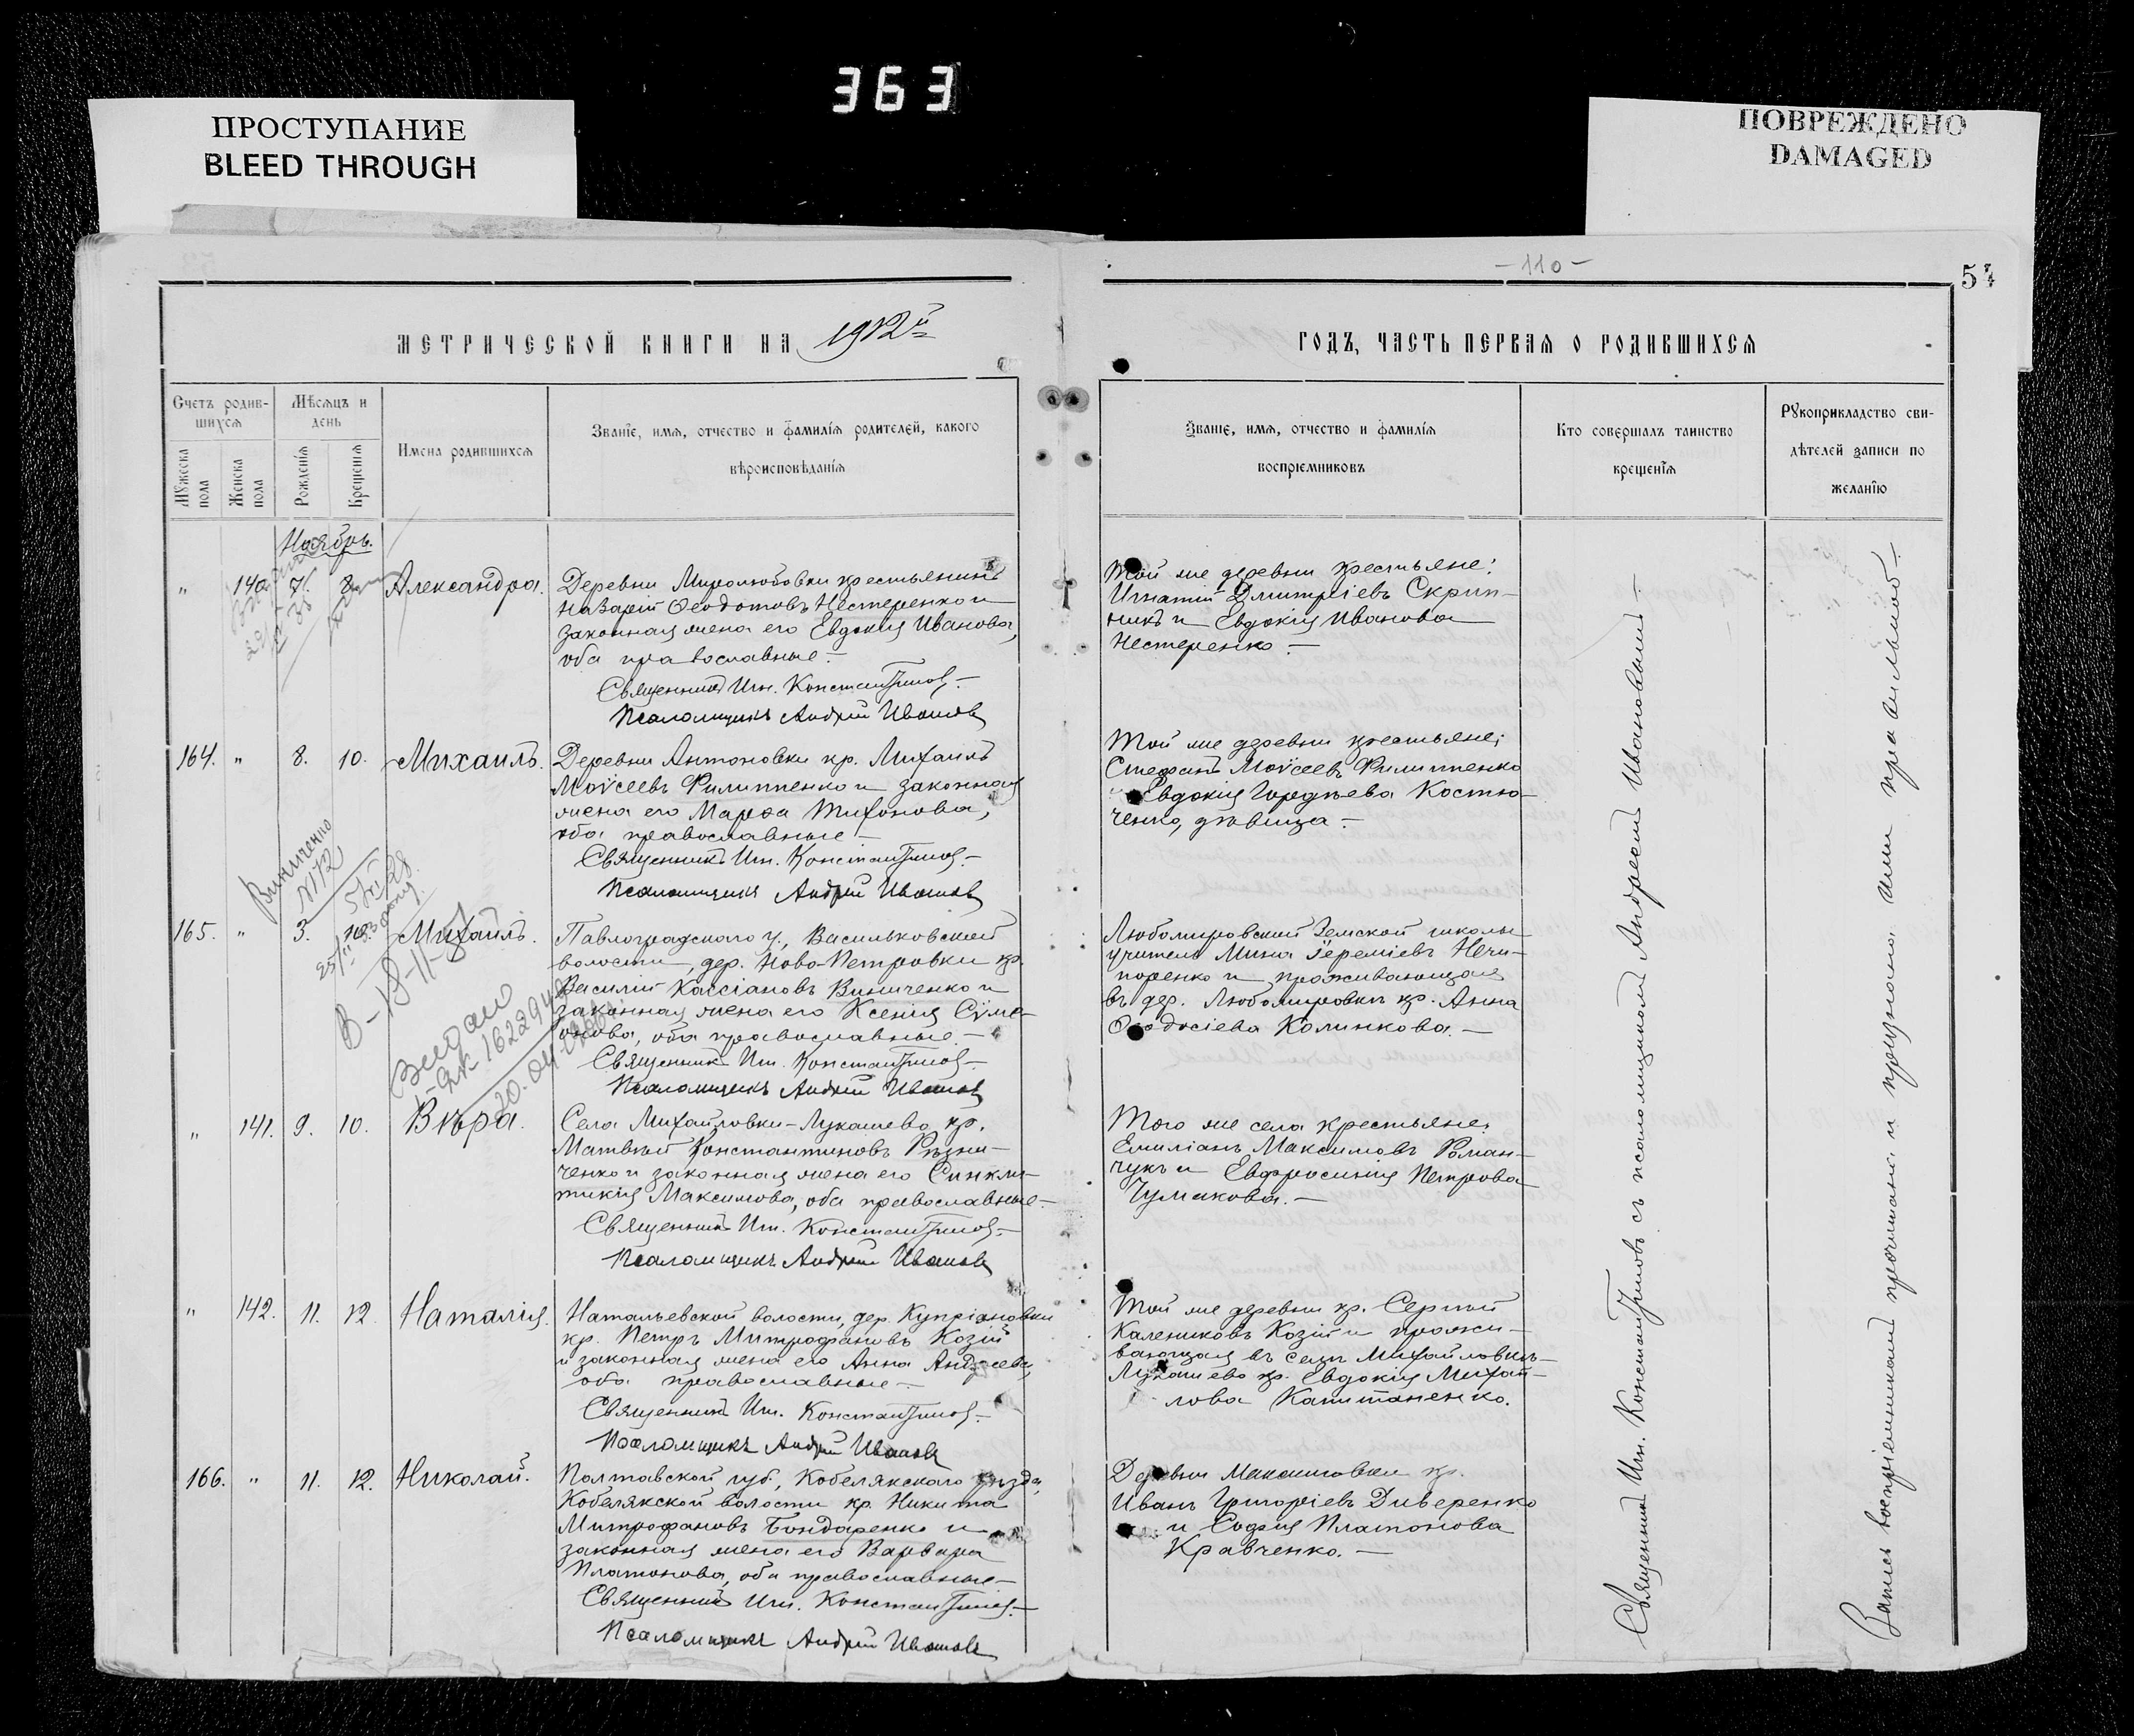 363
ПРОСТУПАНИЕ
BLEED THROUGH
ПОВРЕЖДЕНО
DAMAGED
МЕТРИЧЕСКОЙ КНИГИ НА 1912й
Счетъ родив-
шихся
Мѣсяцъ и
день
Мужеска
пола
Женска
пола
Рожденія
Крещенія
Имена родившихся
Званіе, имя, отчество и фамилія родителей, какого
вѣроисповѣданія
Ноябрь.
" 140. 7. 8. Александра.
Деревни Миролюбовки крестьянинъ
Назарій Ѳеодотовъ Нестеренко и
законная жена его Евдокія Иванова,
оба православные.—
Священникъ Ин. Константиновъ.—
Псаломщикъ Андрей Ивановъ
164. " 8. 10. Михаилъ.
Деревни Антоновки кр. Михаилъ
Моѵсеевъ Филиппенко и законная
жена его Марѳа Тихонова,
оба православные—
Священникъ Ин. Константиновъ.—
Псаломщикъ Андрей Ивановъ
Винниченко
N112
165. " 3. 10. Михаилъ.
Павлоградского у., Васильковской
волости, дер. Ново-Петровки кр.
Василій Кассіановъ Винниченко и
законная жена его Ксенія Сѵме-
онова, оба православные.—
Священникъ Ин. Константиновъ.—
Псаломщикъ Андрей Ивановъ
" 141. 9. 10. Вѣра.
Села Михайловки-Лукашево кр.
Матвѣй Константиновъ Рѣзни-
ченко и законная жена его Синкли-
тикія Максимова, оба православные.—
Священникъ Ин. Константиновъ.—
Псаломщикъ Андрей Ивановъ
" 142. 11. 12. Наталія.
Натальевской волости, дер. Купріановки
кр. Петръ Митрофановъ Козій
и законная жена его Анна Андреева,
оба православные—
Священникъ Ин. Константиновъ.—
Псаломщикъ Андрей Ивановъ
166. " 11. 12. Николай.
Полтавской губ., Кобелякского уѣзда,
Кобелякской волости кр. Никита
Митрофановъ Бондаренко и
законная жена его Варвара
Платонова, оба православные—
Священникъ Ин. Константиновъ.—
Псаломщикъ Андрей Ивановъ
—110—
54
ГОДЪ, ЧАСТЬ ПЕРВАЯ О РОДИВШИХСЯ
Званіе, имя, отчество и фамилія
воспріемниковъ
Кто совершалъ таинство
крещенія
Рукоприкладство сви-
дѣтелей записи по
желанію
Той же деревни крестьяне:
Игнатій Дмитріевъ Скрип-
никъ и Евдокія Иванова
Нестеренко.—
Той же деревни крестьяне;
Стефанъ Моѵсеевъ Филиппенко
и Евдокія Гордѣева Костю-
ченко, дѣвица.—
Любомировской Земской школы
учитель Мина Іереміевъ Нечи-
поренко и проживающая
въ дер. Любомировкѣ кр. Анна
Ѳеодосіева Калинкова.—
Того же села крестьяне:
Емиліанъ Максимовъ Роман-
чукъ и Евфросинія Петрова
Чумакова.—
Той же деревни кр. Сергій
Калениковъ Козій и прожи-
вающая въ селѣ Михайловкѣ-
Лукашево кр. Евдокія Михай-
лова Капитаненко.
Деревни Максимовки кр.
Иванъ Григоріевъ Диверенко
и Софія Платонова
Кравченко.—
Священникъ Ин. Константиновъ съ псаломщикомъ Андреемъ Ивановымъ—